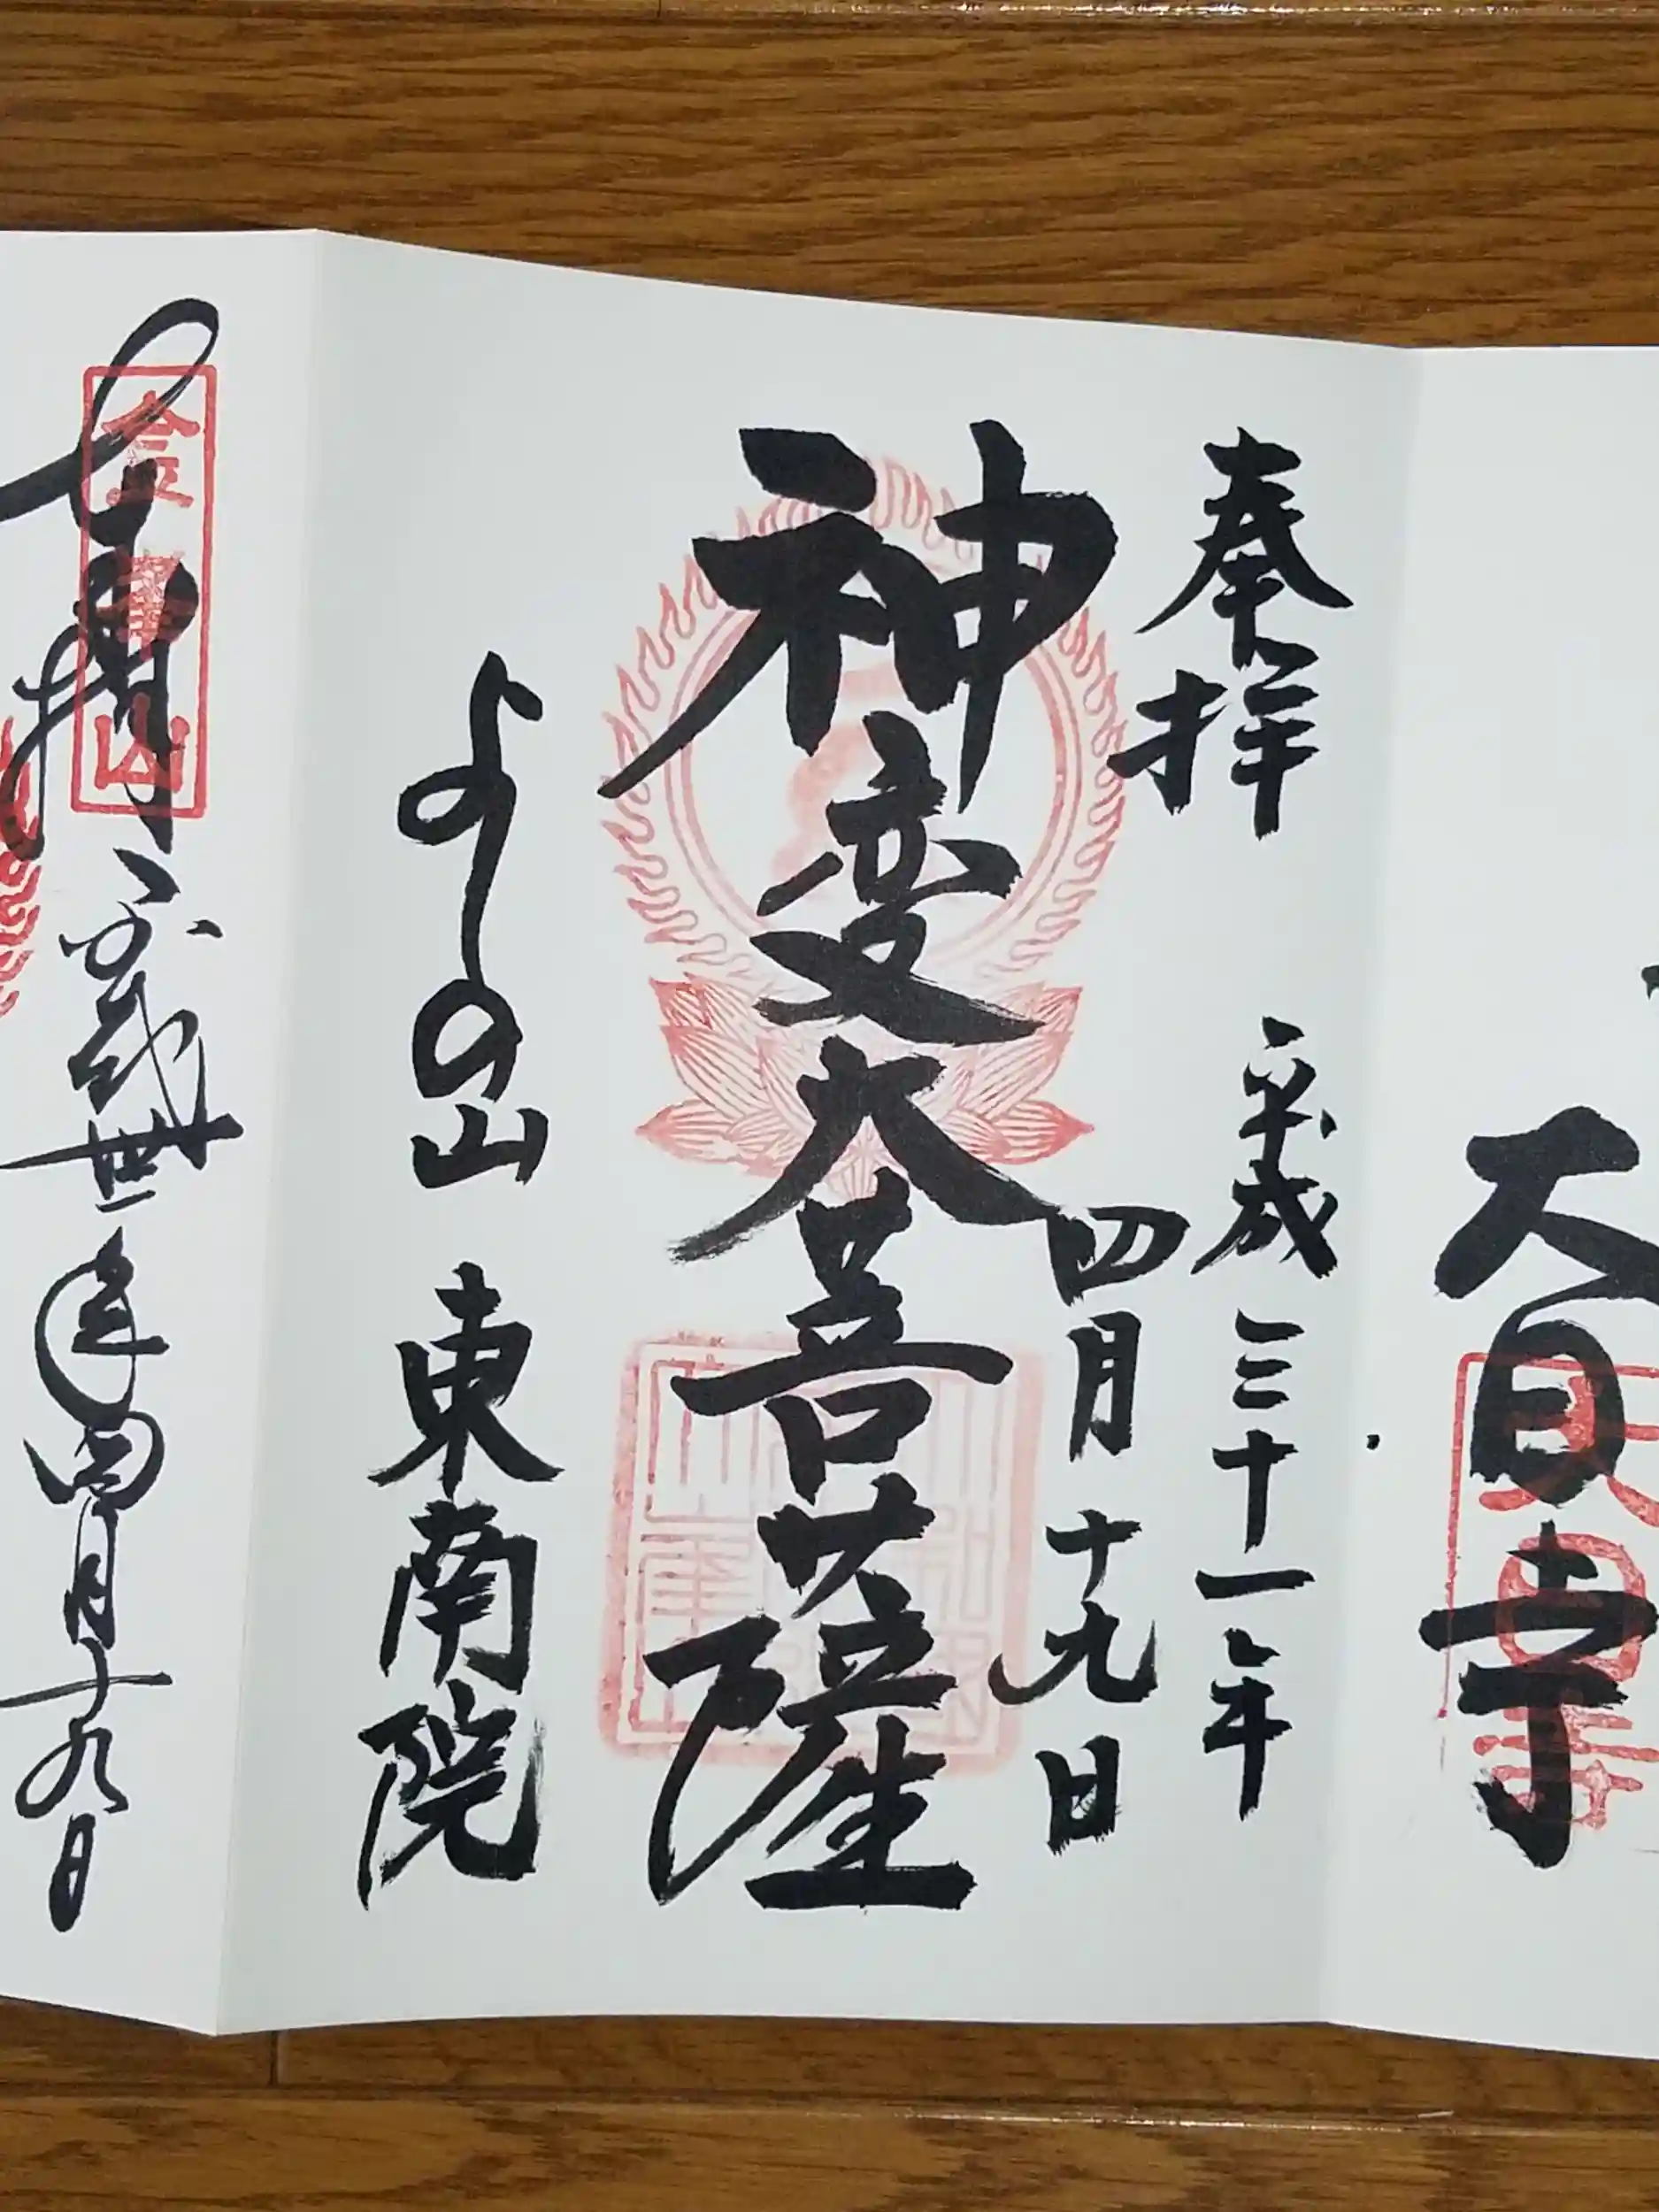 大日寺
大日寺
奉拝
平成三十一年
四月十九日
神変大菩薩
よしの山
東南院
金峯山
奉拝
平成卅一年四月十九日